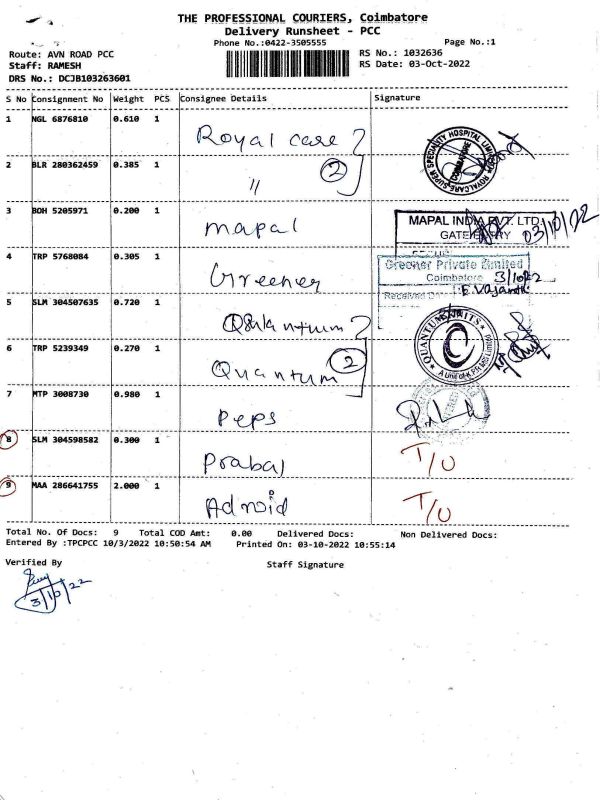 THE PROFESSIONAL COURIERS, Coimbatore
Delivery Runsheet - PCC
Phone No.:0422-3505555 Page No.:1
Route: AVN ROAD PCC RS No.: 1032636
Staff: RAMESH RS Date: 03-Oct-2022
DRS No.: DCJB103263601
S No Consignment No Weight PCS Consignee Details Signature
1 NGL 6876810 0.610 1 Royal care
2 BLR 280362459 0.385 1 " 2
3 BOH 5205971 0.200 1 mapal MAPAL INDIA PVT. LTD
GATE ENTRY 03/10/22
4 TRP 5768084 0.305 1 Greener Greener Private Limited
Coimbatore 3/10/22
Received
5 SLM 304507635 0.720 1 Quantum
6 TRP 5239349 0.270 1 Quantum 2
7 MTP 3008730 0.980 1 Peps
8 SLM 304598582 0.300 1 Prabal T/U
9 MAA 286641755 2.000 1 Adroid T/U
Total No. Of Docs: 9 Total COD Amt: 0.00 Delivered Docs: Non Delivered Docs:
Entered By :TPCPCC 10/3/2022 10:50:54 AM Printed On: 03-10-2022 10:55:14
Verified By Staff Signature
3/10/22